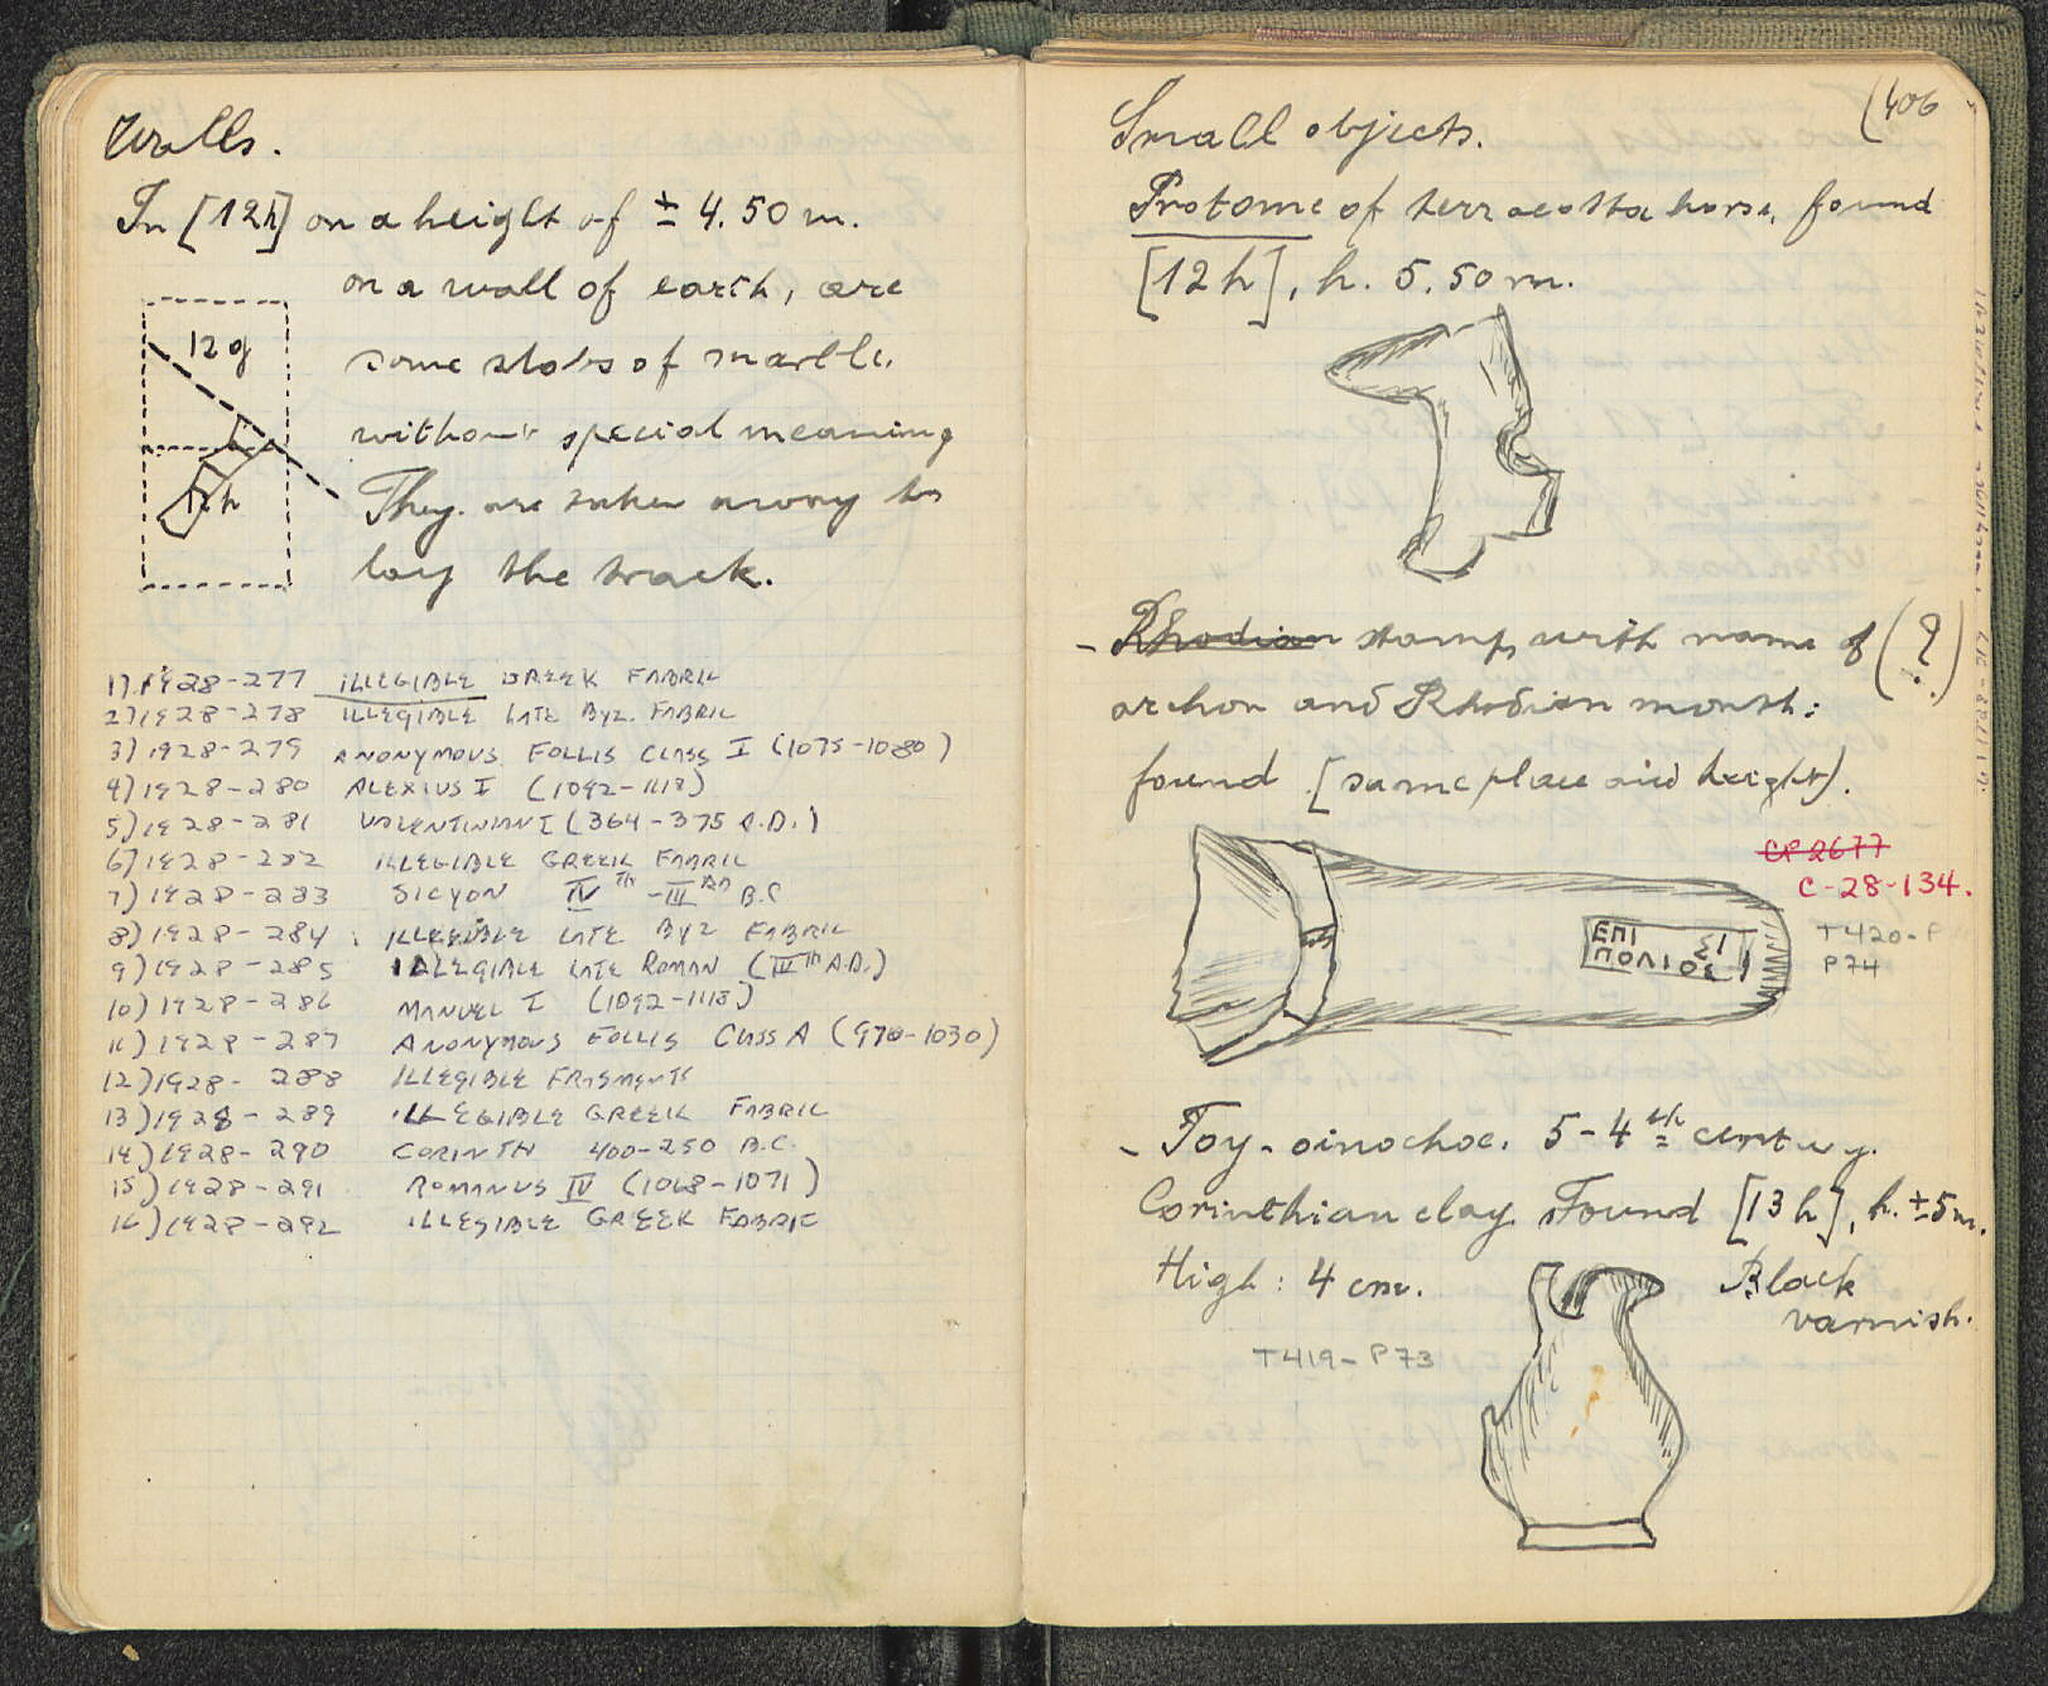 Walls.
In [12h] on a height of ± 4.50 m.
on a wall of earth, are
some slabs of marble.
without special meaning
They are taken away to
lay the track.
12g
12h
1) 1928-277 ILLEGIBLE GREEK FABRIC
2) 1928-278 ILLEGIBLE LATE BYZ. FABRIC
3) 1928-279 ANONYMOUS FOLLIS CLASS I (1075-1080)
4) 1928-280 ALEXIUS I (1092-1118)
5) 1928-281 VALENTINIAN I (364-375 A.D.)
6) 1928-282 ILLEGIBLE GREEK FABRIC
7) 1928-283 SICYON IVTH-IIIRD B.C
8) 1928-284 ILLEGIBLE LATE BYZ FABRIC
9) 1928-285 ILLEGIBLE LATE ROMAN (IVth A.D.)
10) 1928-286 MANUEL I (1092-1118)
11) 1928-287 ANONYMOUS FOLLIS CLASS A (970-1030)
12) 1928-288 ILLEGIBLE FRAGMENTS
13) 1928-289 ILLEGIBLE GREEK FABRIC
14) 1928-290 CORINTH 400-250 B.C.
15) 1928-291 ROMANUS IV (1068-1071)
16) 1928-292 ILLEGIBLE GREEK FABRIC
(406
Small objects.
Protome of terracotta horse, found
[12h], h. 5.50 m.
- Rhodian stamp with name of (?)
archon and Rhodian month:
found [same place and height).
CP 2677
C-28-134.
T420-P
P74
ΕΠΙ ΣΙ
ΠΟΛΙΟΣ
- Toy-oinochoe. 5-4th century.
Corinthian clay Found [13h], h. ±5m.
High: 4 cm.
Black
varnish.
T419-P73